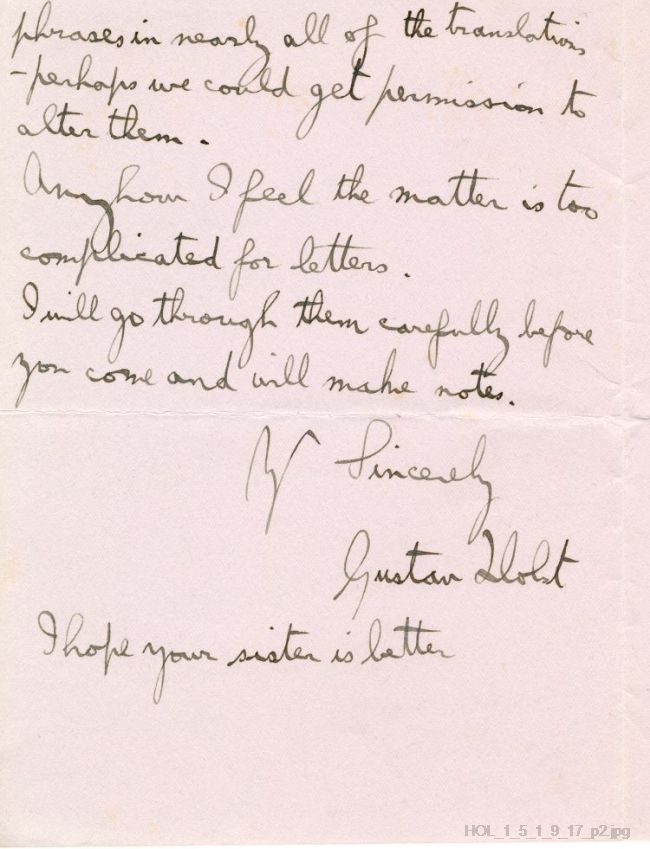 phrases in nearly all of the translations
- perhaps we could get permission to
alter them.
Anyhow I feel the matter is too
complicated for letters.
I will go through them carefully before
you come and will make notes.
Yr Sincerely
Gustav Holst
I hope your sister is better
HOL_1_5_1_9_17_p2.jpg